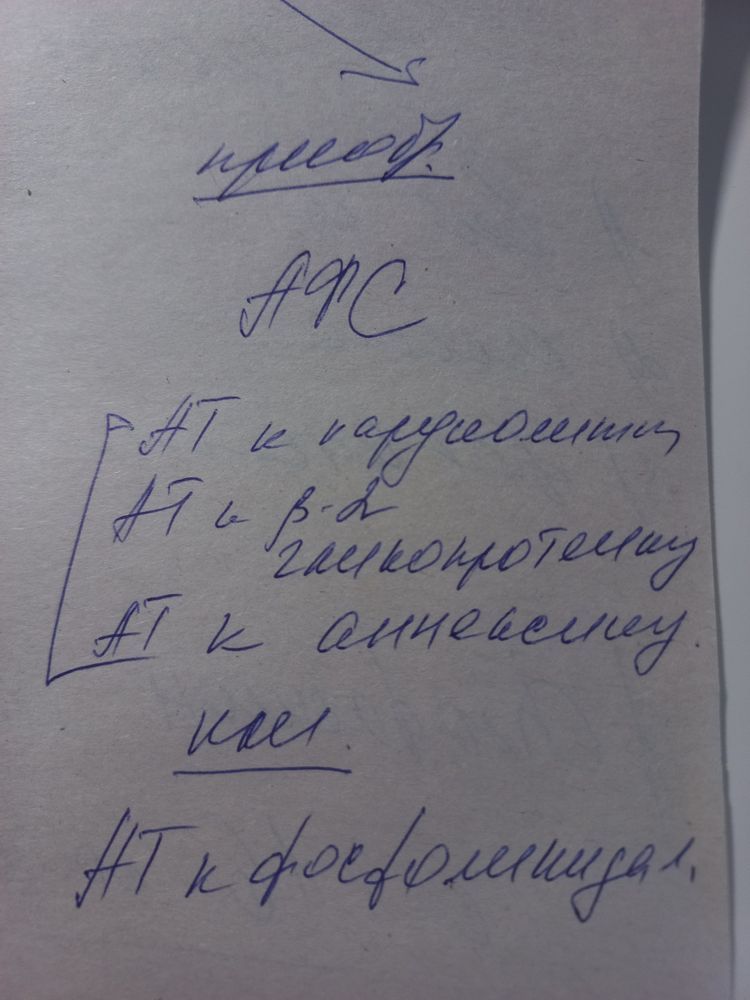 приобр.
АФС
АТ к кардиолипину
АТ к β-2
гликопротеину
АТ к аннексину.
кол.
АТ к фосфолипидам.